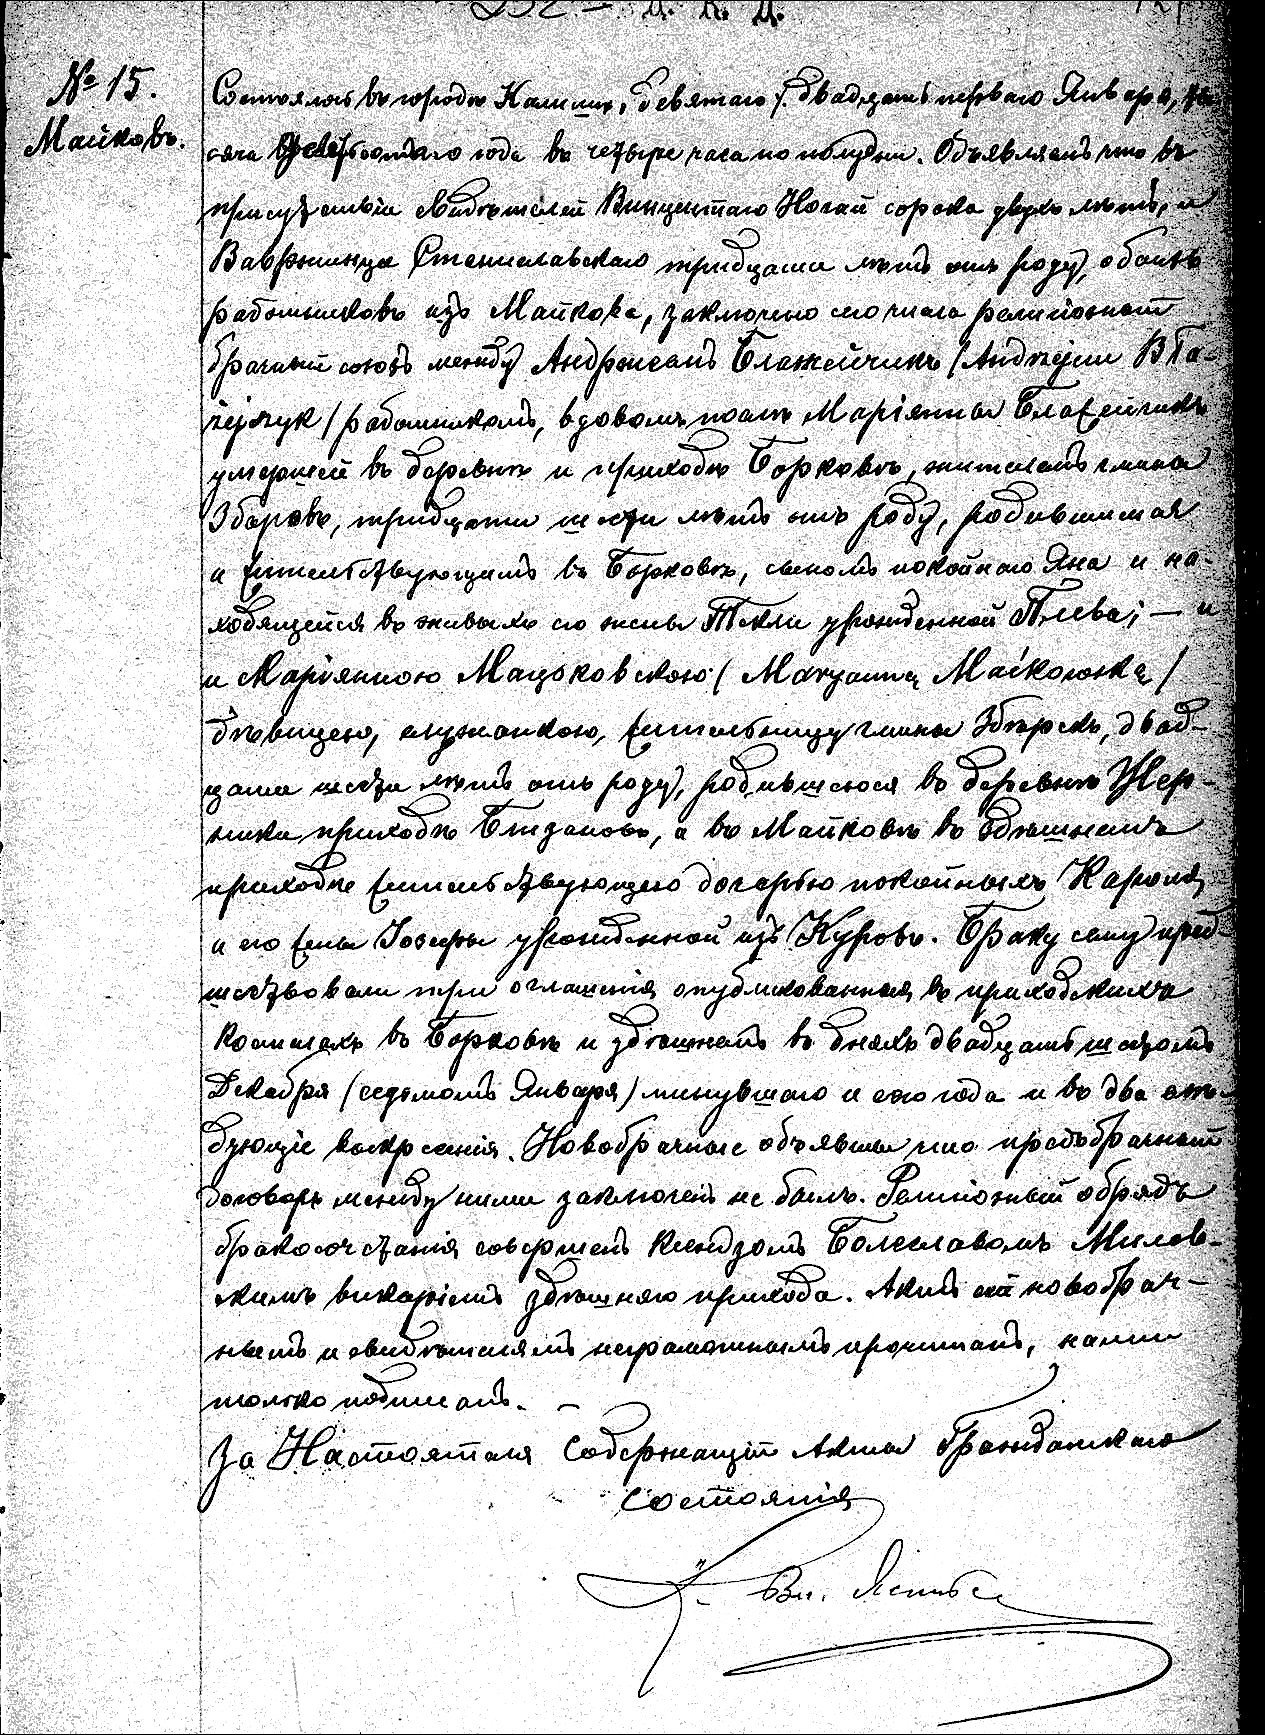 № 15.
Майковъ.
Состоялось въ городѣ Калишѣ, девятаго / двадцать перваго Января, ты-
сяча года въ четыре часа по полудни. Объявляемъ что въ
присутствіи свидѣтелей Винцентаго Ногай сорока двухъ лѣтъ, и
Вавржинца Станиславскаго тридцати лѣтъ отъ роду, обоихъ
работниковъ изъ Майкова, заключено сего числа религіозный
брачный союзъ между Андржеемъ Блажейчикъ / Andrzejem Bła-
żejczyk / работникомъ, вдовомъ послѣ Маріянны Блажейчикъ
умершей въ деревнѣ и приходѣ Борковѣ, жителемъ гмины
Збаровъ, тридцати шести лѣтъ отъ роду, родившимся
и жительствующимъ въ Борковѣ, сыномъ покойнаго Яна и на-
ходящейся въ живыхъ его жены Текли урожденной Плева; — и
и Маріянною Мацьковскою / Maryanną Maćkowską /
дѣвицею, служанкою, жительницу гмины Збѣрскъ, двад-
цати шести лѣтъ отъ роду, родившеюся въ деревнѣ
приходѣ а въ Майковѣ въ здѣшнемъ
приходѣ жительствующею дочерью покойныхъ Кароля
и его жены Іозефы урожденной изъ Куровъ. Браку сему пред-
шествовали три оглашенія опубликованныя въ приходскихъ
костелахъ въ Борковѣ и здѣшнемъ въ дняхъ двадцать шестомъ
Декабря (седьмомъ Января) минувшаго и сего года и въ два слѣ-
дующіе воскресенія. Новобрачные объявили что предбрачный
договоръ между ними заключенъ не былъ. Религіозный обрядъ
бракосочетанія совершенъ ксендзомъ Болеславомъ Милев-
скимъ викаріемъ здѣшняго прихода. Актъ сей новобрач-
нымъ и свидѣтелямъ неграмотнымъ прочитанъ, нами
только подписанъ. —
За Настоятеля Содержащій Акты Гражданскаго
Состоянія
К. Вл.